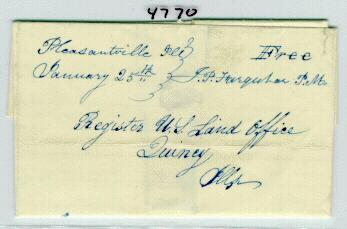 4770
Pleasantville Ill
Free
January 25th
J.P. Farquhar P.M.
Register U.S. Land Office
Quincy
Ills